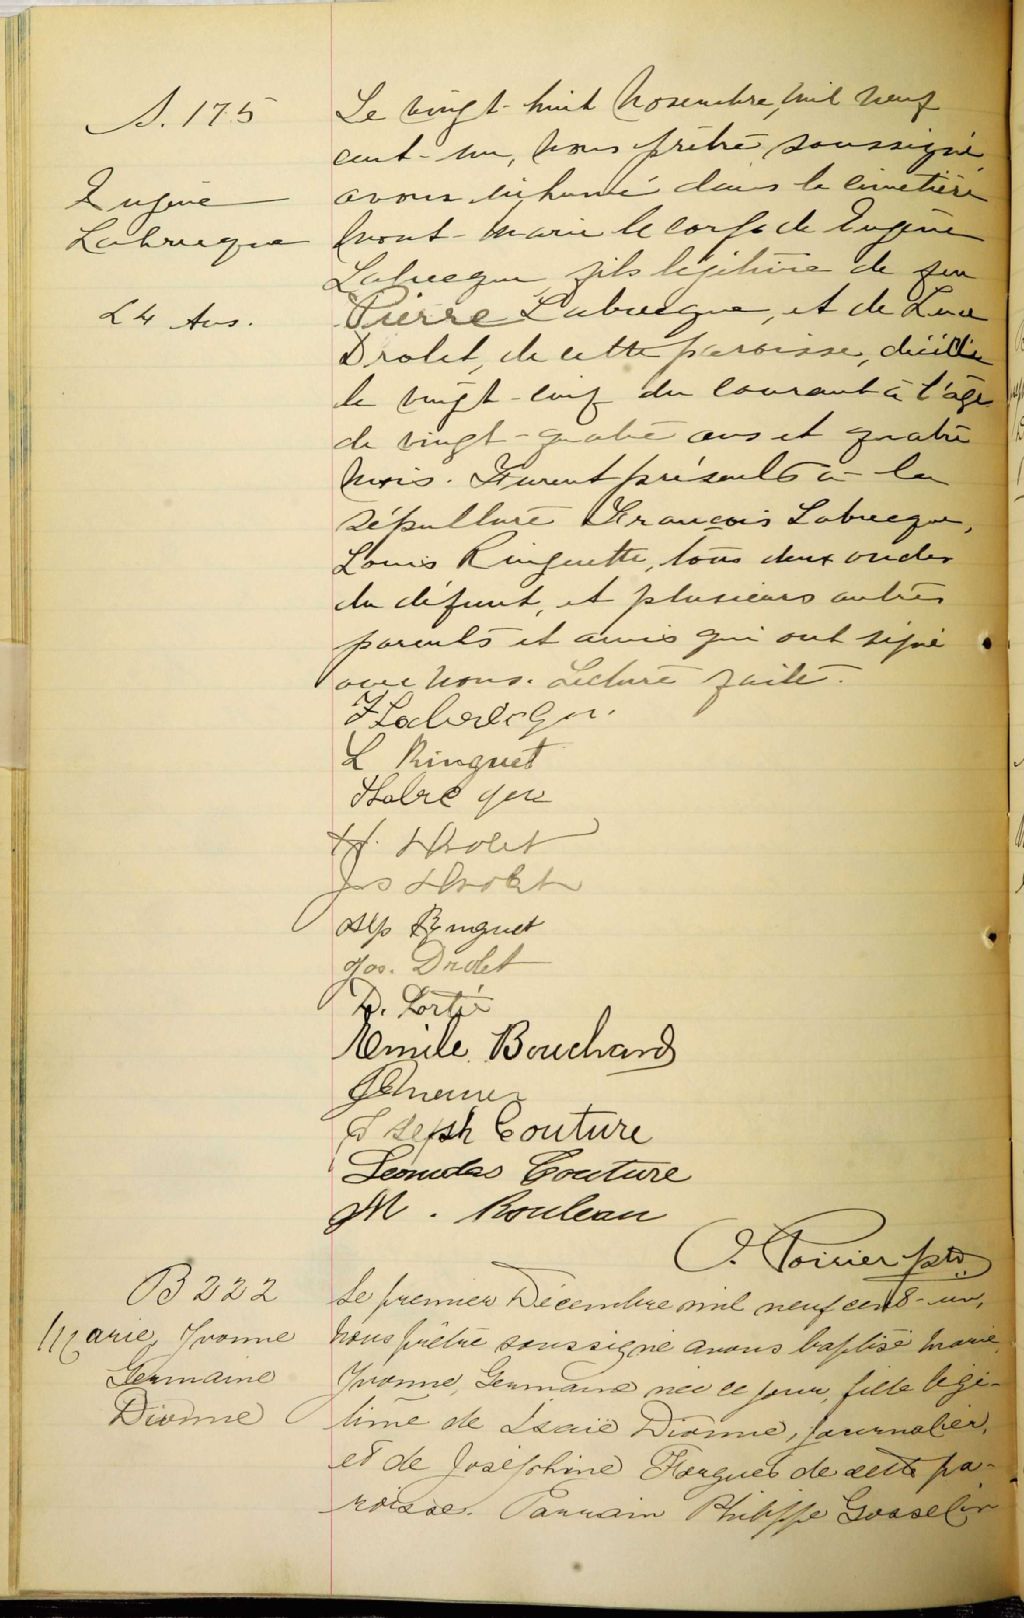 S. 175
Eugène
Labrecque
24 Ans.
Le vingt-huit Novembre, mil neuf
cent-un, Nous prêtre soussigné,
avons inhumé dans le cimetière
Mont-Marie le corps de Eugène
Labrecque, fils légitime de feu
Pierre Labrecque, et de
Drolet, de cette paroisse, décédé
le vingt-cinq du courant à l'âge
de vingt-quatre ans et quatre
mois. Furent présents à la
sépulture François Labrecque,
Louis Ringuette, tous deux oncles
du défunt, et plusieurs autres
parents et amis qui ont signé
avec Nous. Lecture faite.
F Labrecque.
L Ringuet
H. Drolet
Jos Drolet
Alp Ringuet
Jos. Drolet
D. Fortié
Emile Bouchard
Joseph Couture
Leonidas Couture
M. Rouleau
O. Poirier ptre
B 222
Marie, Yvonne
Germaine
Dionne
Le premier Décembre mil neuf cent-un,
Nous prêtre soussigné avons baptisé Marie,
Yvonne, Germaine née ce jour, fille légi-
time de Isaïe Dionne, journalier,
et de Joséphine Forgues de cette pa-
roisse. Parrain Philippe Gosselin